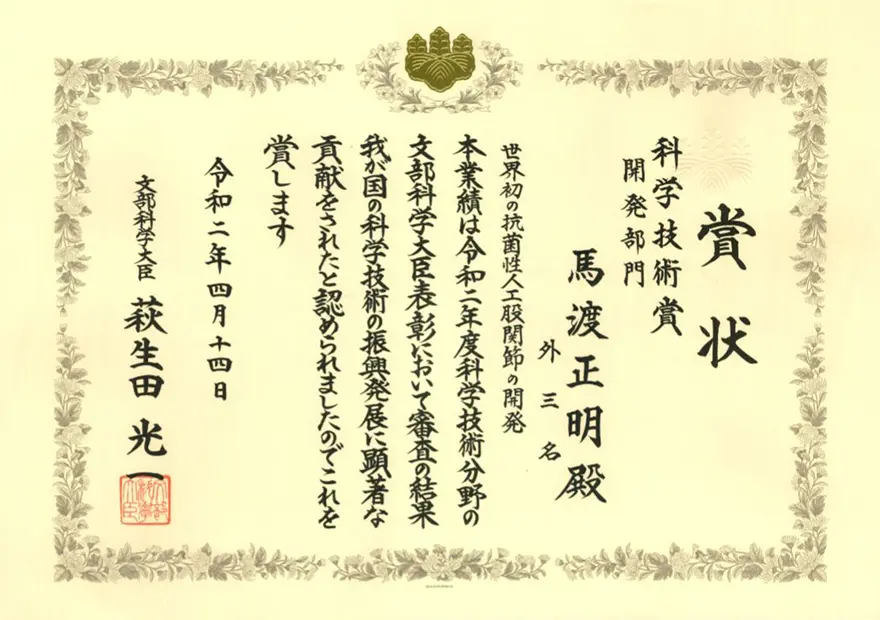 賞状
科学技術賞
開発部門
馬渡正明殿
外三名
世界初の抗菌性人工股関節の開発
本業績は令和二年度科学技術分野の
文部科学大臣表彰において審査の結果
我が国の科学技術の振興発展に顕著な
貢献をされたと認められましたのでこれを
賞します
令和二年四月十四日
文部科学大臣 萩生田光一